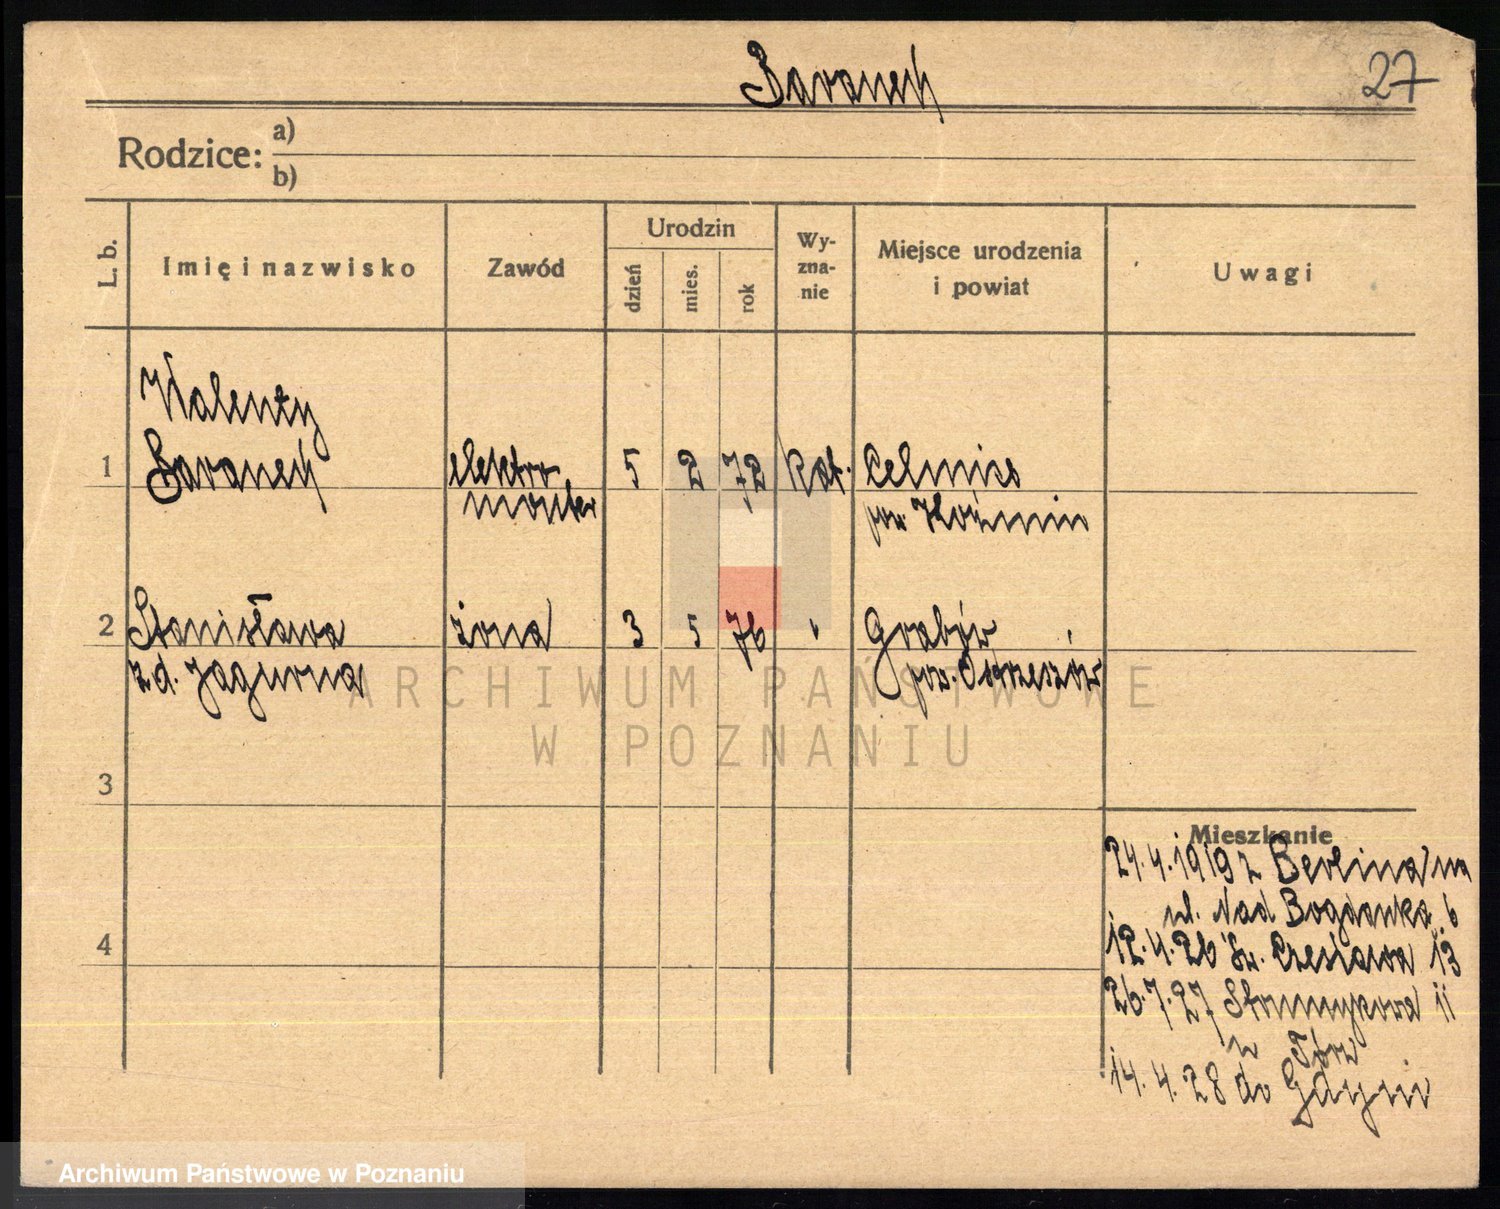 Baranek
27
Rodzice: a)
b)
L. b.
Imię i nazwisko
Zawód
Urodzin
dzień
mies.
rok
Wy-
zna-
nie
Miejsce urodzenia
i powiat
Uwagi
Walenty
1 Baranek elektro 5 2 72 kat.
monter pow. Koźmin
2 Stanisława żona 3 5 76 " Grabów
z d. Jagurna pow. Ostrzeszów
ARCHIWUM PAŃSTWOWE
W POZNANIU
3
Mieszkanie
24.4.1919 z Berlina
ul. Nad Bogdanką 6
4
12.4.26 Św. Czesława 13
26.7.27 11
14.4.28 do Gdyni
Archiwum Państwowe w Poznaniu